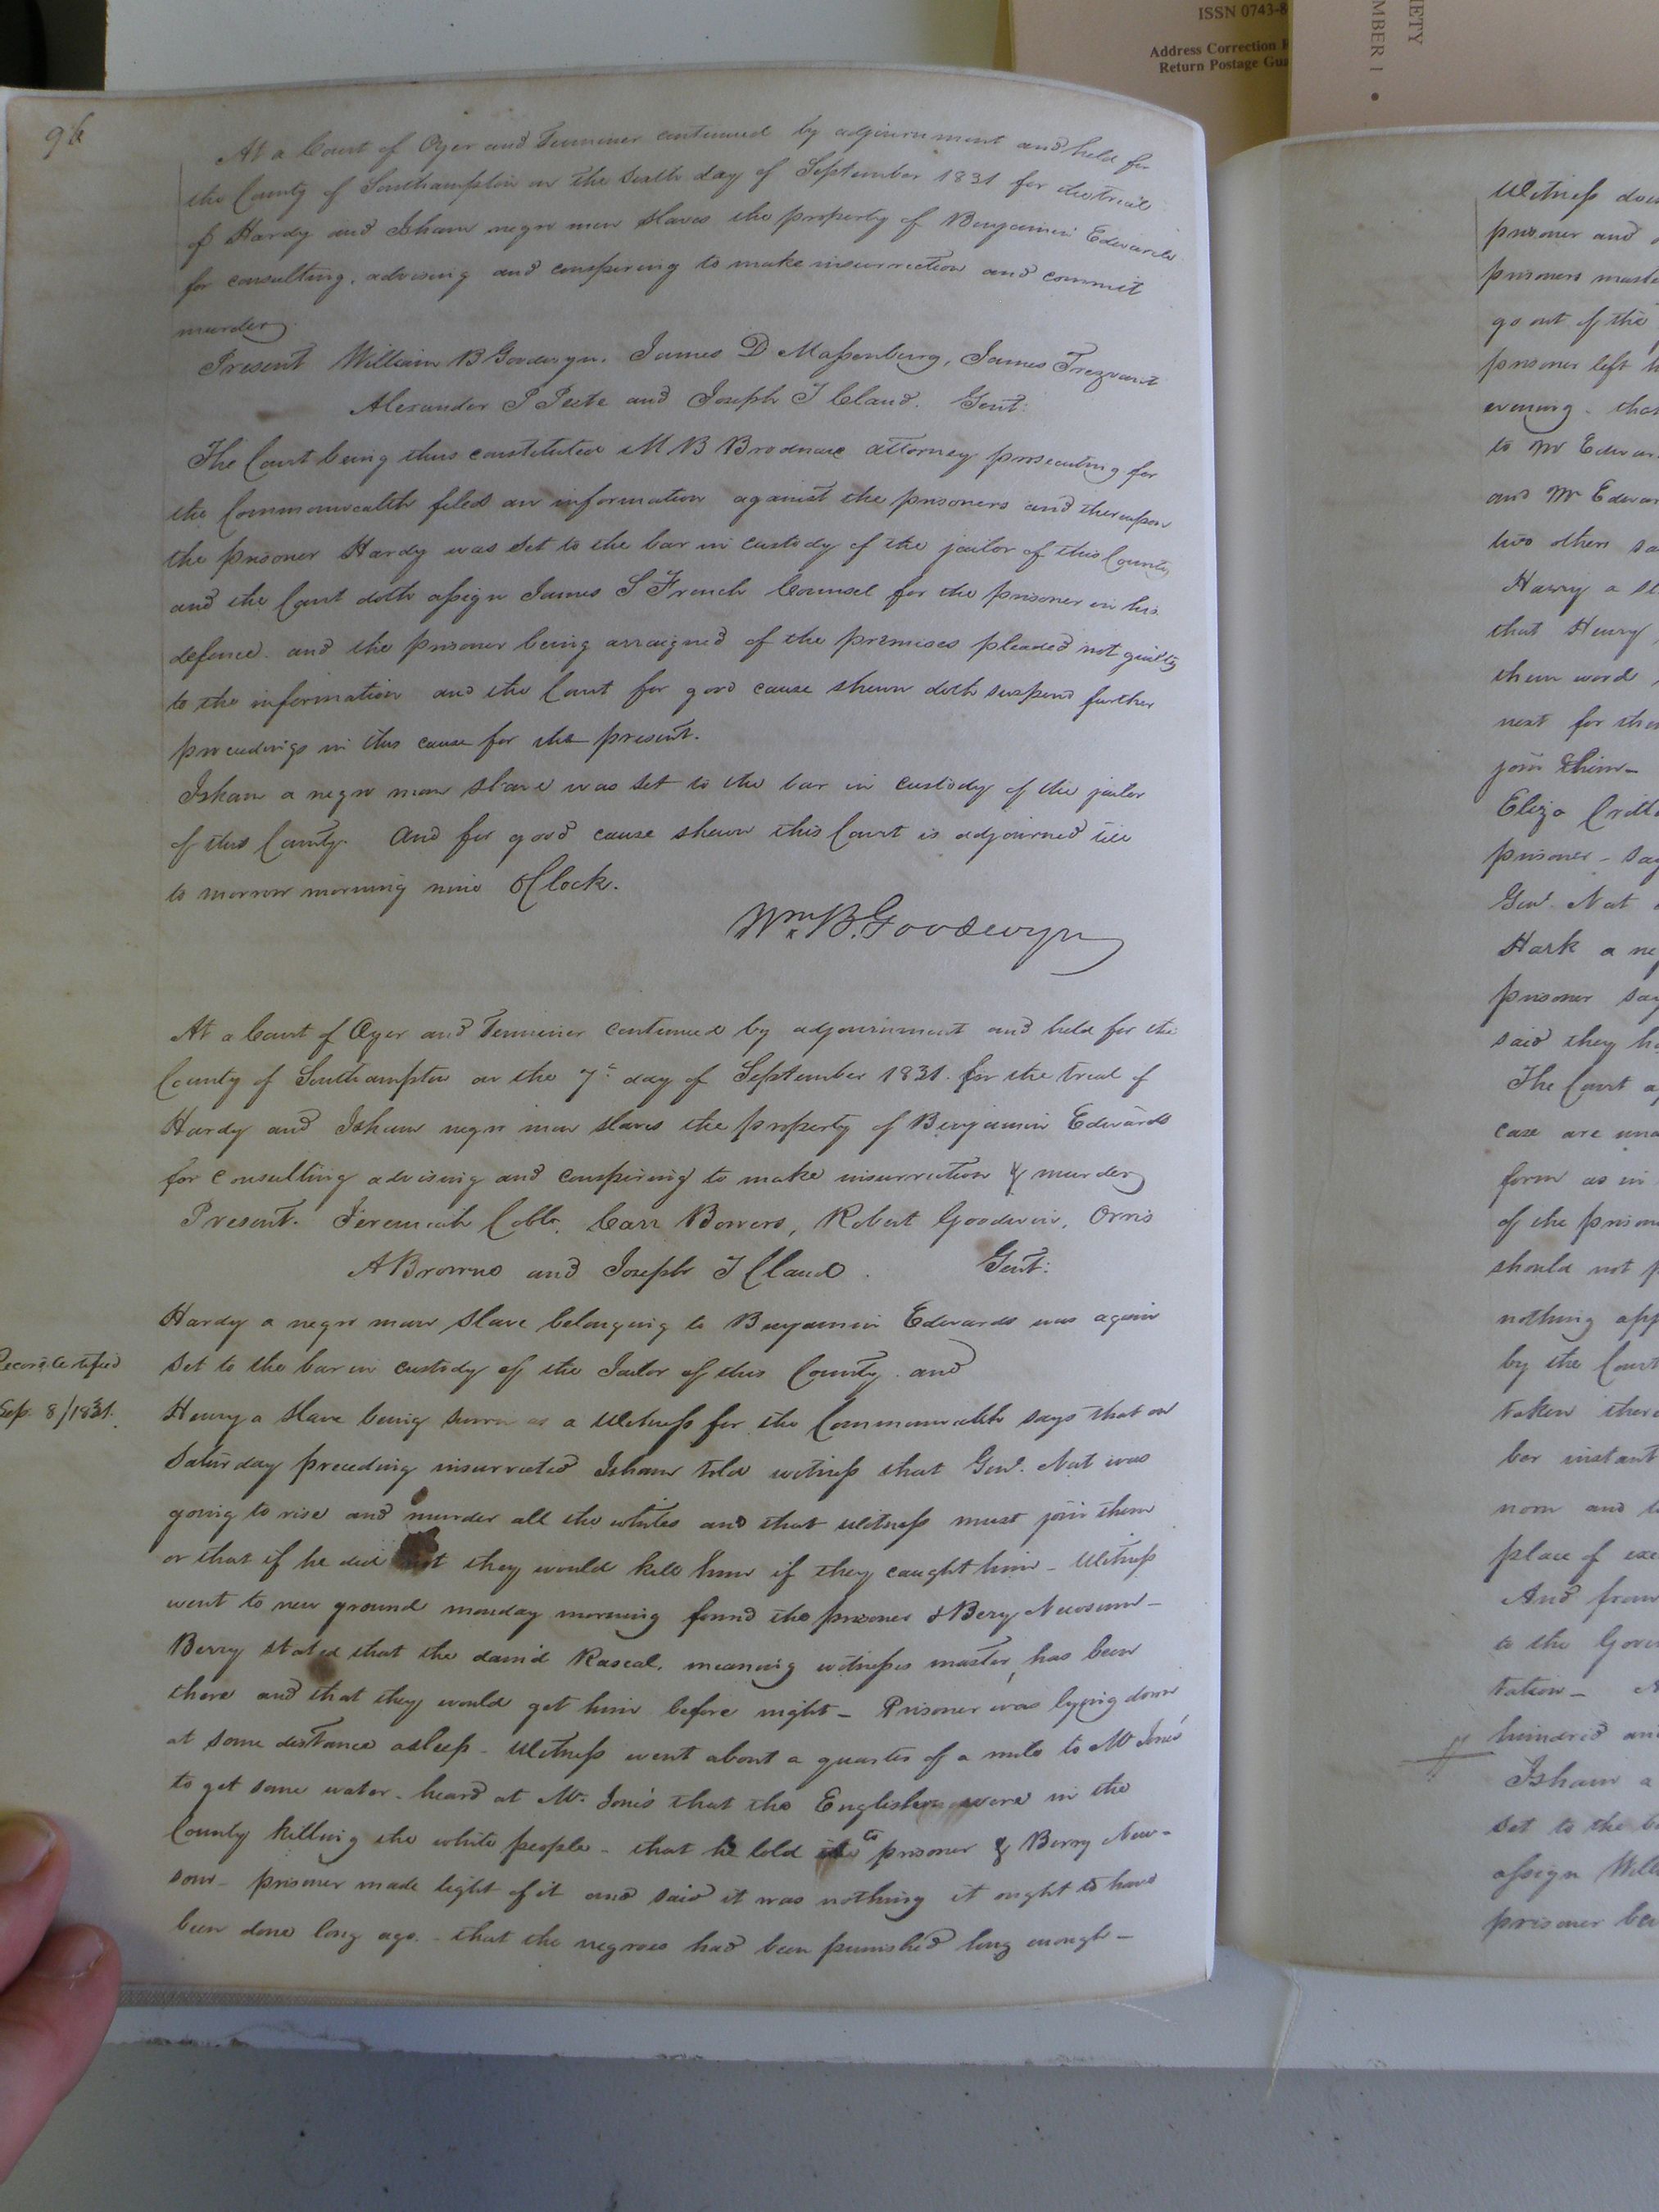 ISSN 0743-8
Address Correction
Return Postage Gua
IETY
MBER 1 •
96
At a Court of Oyer and Terminer continued by adjournment and held for
the County of Southampton on the Sixth day of September 1831 for the trial
of Hardy and Isham negro men slaves the property of Benjamin Edwards
for consulting, advising and conspiring to make insurrection and commit
murder
Present William B Goodwyn, James D Massenburg, James Trezvant
Alexander P Peete and Joseph T Claud. Gent:
The Court being thus constituted M B Brodnax attorney prosecuting for
the Commonwealth filed an information against the prisoners and thereupon
the prisoner Hardy was set to the bar in custody of the jailor of this County
and the Court doth assign James S French Counsel for the prisoner in his
defence. and the prisoner being arraigned of the premises pleaded not guilty
to the information and the Court for good cause shewn doth suspend further
proceedings in this cause for the present.
Isham a negro man slave was set to the bar in custody of the jailor
of this County. And for good cause shewn this Court is adjourned till
to morrow morning nine OClock.
Wm. B. Goodwyn
At a Court of Oyer and Terminer continued by adjournment and held for the
County of Southampton on the 7th day of September 1831. for the trial of
Hardy and Isham negro men slaves the property of Benjamin Edwards
for consulting advising and conspiring to make insurrection & murder
Present. Jeremiah Cobb, Carr Bowers, Robert Goodwin, Orris
A Browne and Joseph T Claud. Gent:
Hardy a negro man slave belonging to Benjamin Edwards was again
Record Certified
set to the bar in custody of the Jailor of this County. and
Sep. 8/1831.
Henry a slave being sworn as a Witness for the Commonwealth says that on
Saturday preceding insurrected Isham told witness that Genl. Nat was
going to rise and murder all the whites and that witness must join them
or that if he did not they would kill him if they caught him - Witness
went to new ground monday morning found the prisoner & Bery Newsum -
Berry stated that the damd Rascal, meaning witnesses master, has been
there and that they would get him before night - Prisoner was lyying down
at some distance asleep - Witness went about a quarter of a mile to Mr Jones'
to get some water - heard at Mr. Jones that the English were in the
County killing the white people - that he told to prisoner & Berry New-
som - prisoner made light of it and said it was nothing it ought to have
been done long ago. - that the negroes had been punished long enough -
Witness
prisoner and
prisoners
go out of the
prisoner left
evening. that
to Mr
and Mr
two others
Harry a
that Henry
them word
next for
join them -
Eliza
prisoner -
Genl. Nat
Hark a
prisoner
said they
The Court
case are
form as in
of the
should not
nothing
by the Court
taken
bar
noon and
place of
And from
to the
tation -
hundred
Isham a
set to the
assign
prisoner